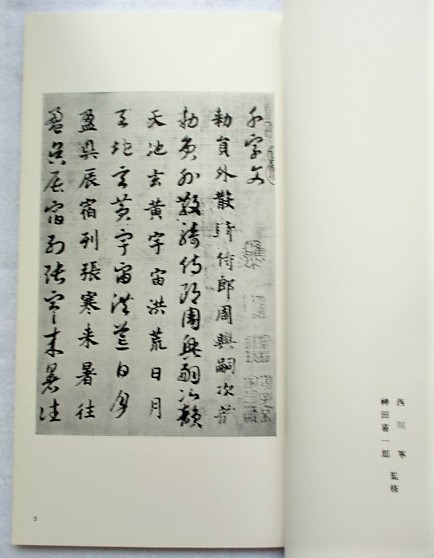 西川寧
神田喜一郎 監修
千字文
勅員外散騎侍郎周興嗣次韻
勅員外散騎侍郎周興嗣次韻
天地玄黃宇宙洪荒日月
天地玄黃宇宙洪荒日月
盈昃辰宿列張寒来暑往
盈昃辰宿列張寒来暑往
3